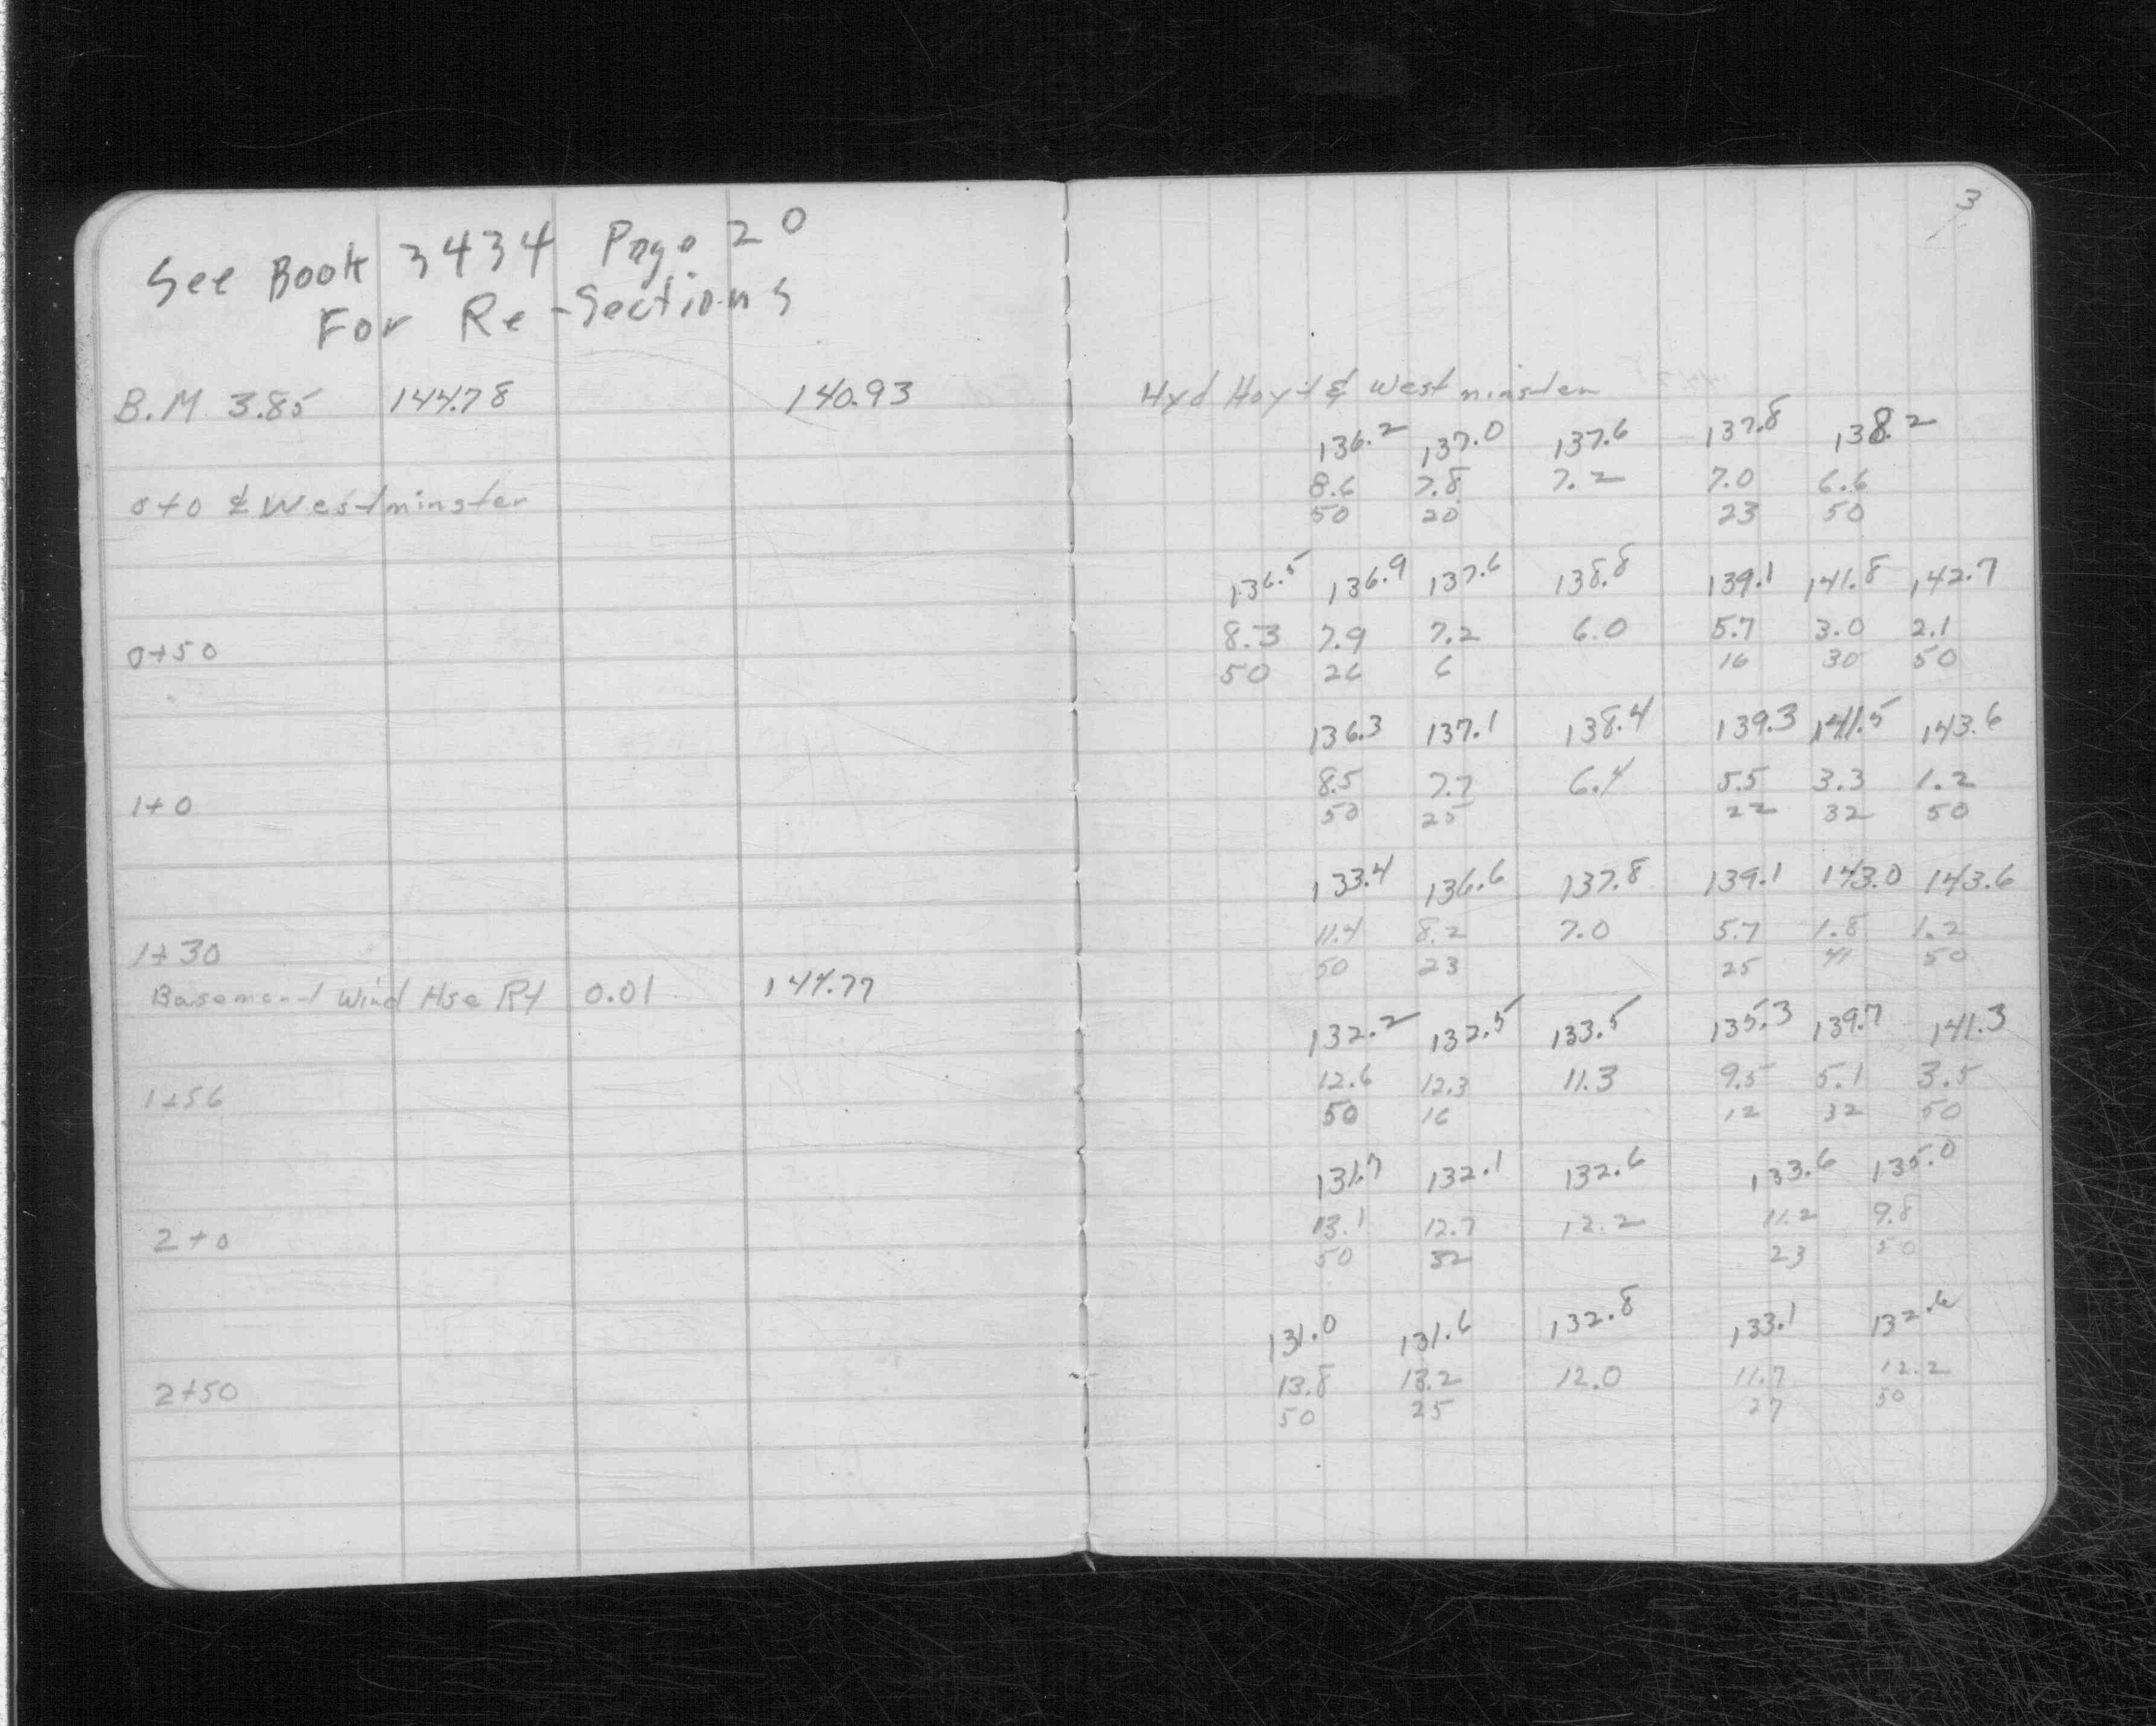 See Book 3434 Page 20
For Re-Sections
B.M. 3.85 144.78 140.93
0+0 ⅊ Westminster
0+50
1+0
1+30
Basement Wind Hse Rt 0.01 144.77
1+56
2+0
2+50
3
Hyd Hoyt & Westminster
136.2 137.0 137.6 137.8 138.2
8.6 7.8 7.2 7.0 6.6
50 20 23 50
136.5 136.9 137.6 138.8 139.1 141.8 142.7
8.3 7.9 7.2 6.0 5.7 3.0 2.1
50 26 6 16 30 50
136.3 137.1 138.4 139.3 141.5 143.6
8.5 7.7 6.4 5.5 3.3 1.2
50 25 22 32 50
133.4 136.6 137.8 139.1 143.0 143.6
11.4 8.2 7.0 5.7 1.8 1.2
50 23 25 41 50
132.2 132.5 133.5 135.3 139.7 141.3
12.6 12.3 11.3 9.5 5.1 3.5
50 16 12 32 50
131.7 132.1 132.6 133.6 135.0
13.1 12.7 12.2 11.2 9.8
50 32 23 50
131.0 131.6 132.8 133.1 132.6
13.8 13.2 12.0 11.7 12.2
50 25 27 50